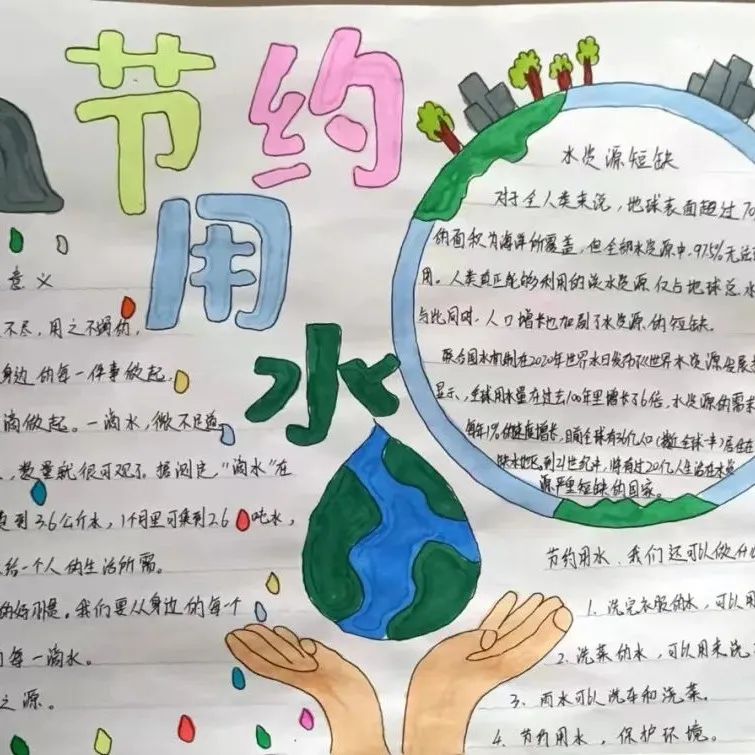 节约
用
水
意义
不尽，用之不竭的，
身边的每一件事做起。
滴做起。一滴水，微不足道。
，数量就很可观了。据测定"滴水"在
到3.6公斤水，1个月里可集到2.6吨水，
给一个人的生活所需。
的好习惯。我们要从身边的每个
每一滴水。
之源。
水资源短缺
对于全人类来说，地球表面超过70
的面积为海洋所覆盖，但全部水资源中，97.5%无法
用。人类真正能够利用的淡水资源仅占地球总水
与此同时，人口增长也加剧了水资源的短缺。
联合国水机制在2020年世界水日发布了《世界水资源发展
显示，全球用水量在过去100年里增长了6倍，水资源的需求
每年1%的速度增长，目前全球有36亿人口（接近全球一半）居住在
缺水地区，到21世纪中，将有过20亿人生活在水资
源严重短缺的国家。
节约用水、我们还可以做什
1、洗完衣服的水，可以用
2、洗菜的水，可以用来浇
3、雨水可以洗车和浇菜。
4、节约用水，保护环境。